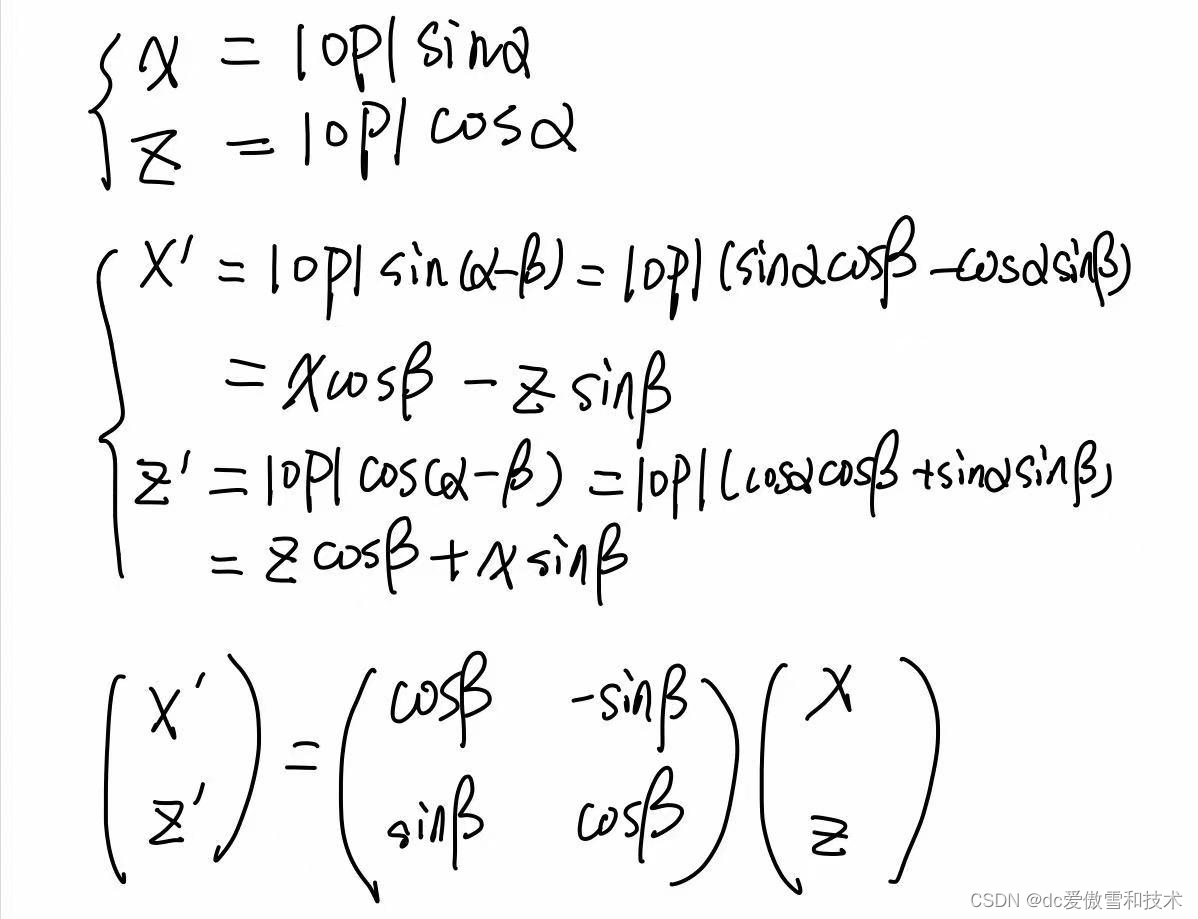 { x = |OP| sinα
z = |OP| cosα
{ x' = |OP| sin(α-β) = |OP| (sinαcosβ - cosαsinβ)
= xcosβ - z sinβ
z' = |OP| cos(α-β) = |OP| (cosαcosβ + sinαsinβ)
= z cosβ + x sinβ
( x' ) = ( cosβ -sinβ ) ( x )
( z' ) ( sinβ cosβ ) ( z )
CSDN @dc爱傲雪和技术